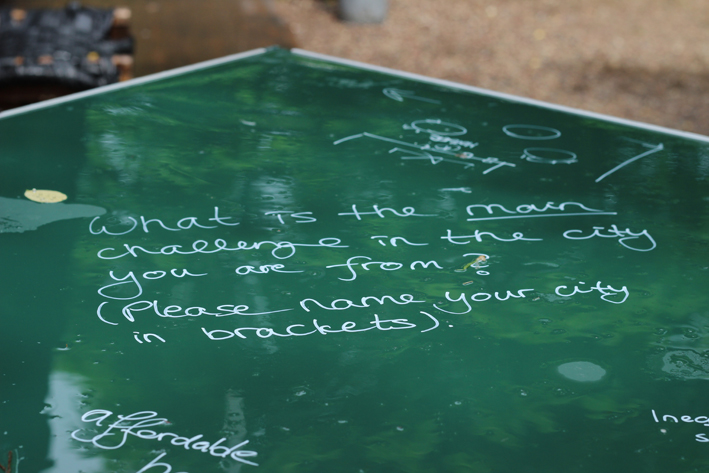 What is the main
challenge in the city
you are from?
(Please name your city
in brackets).
affordable